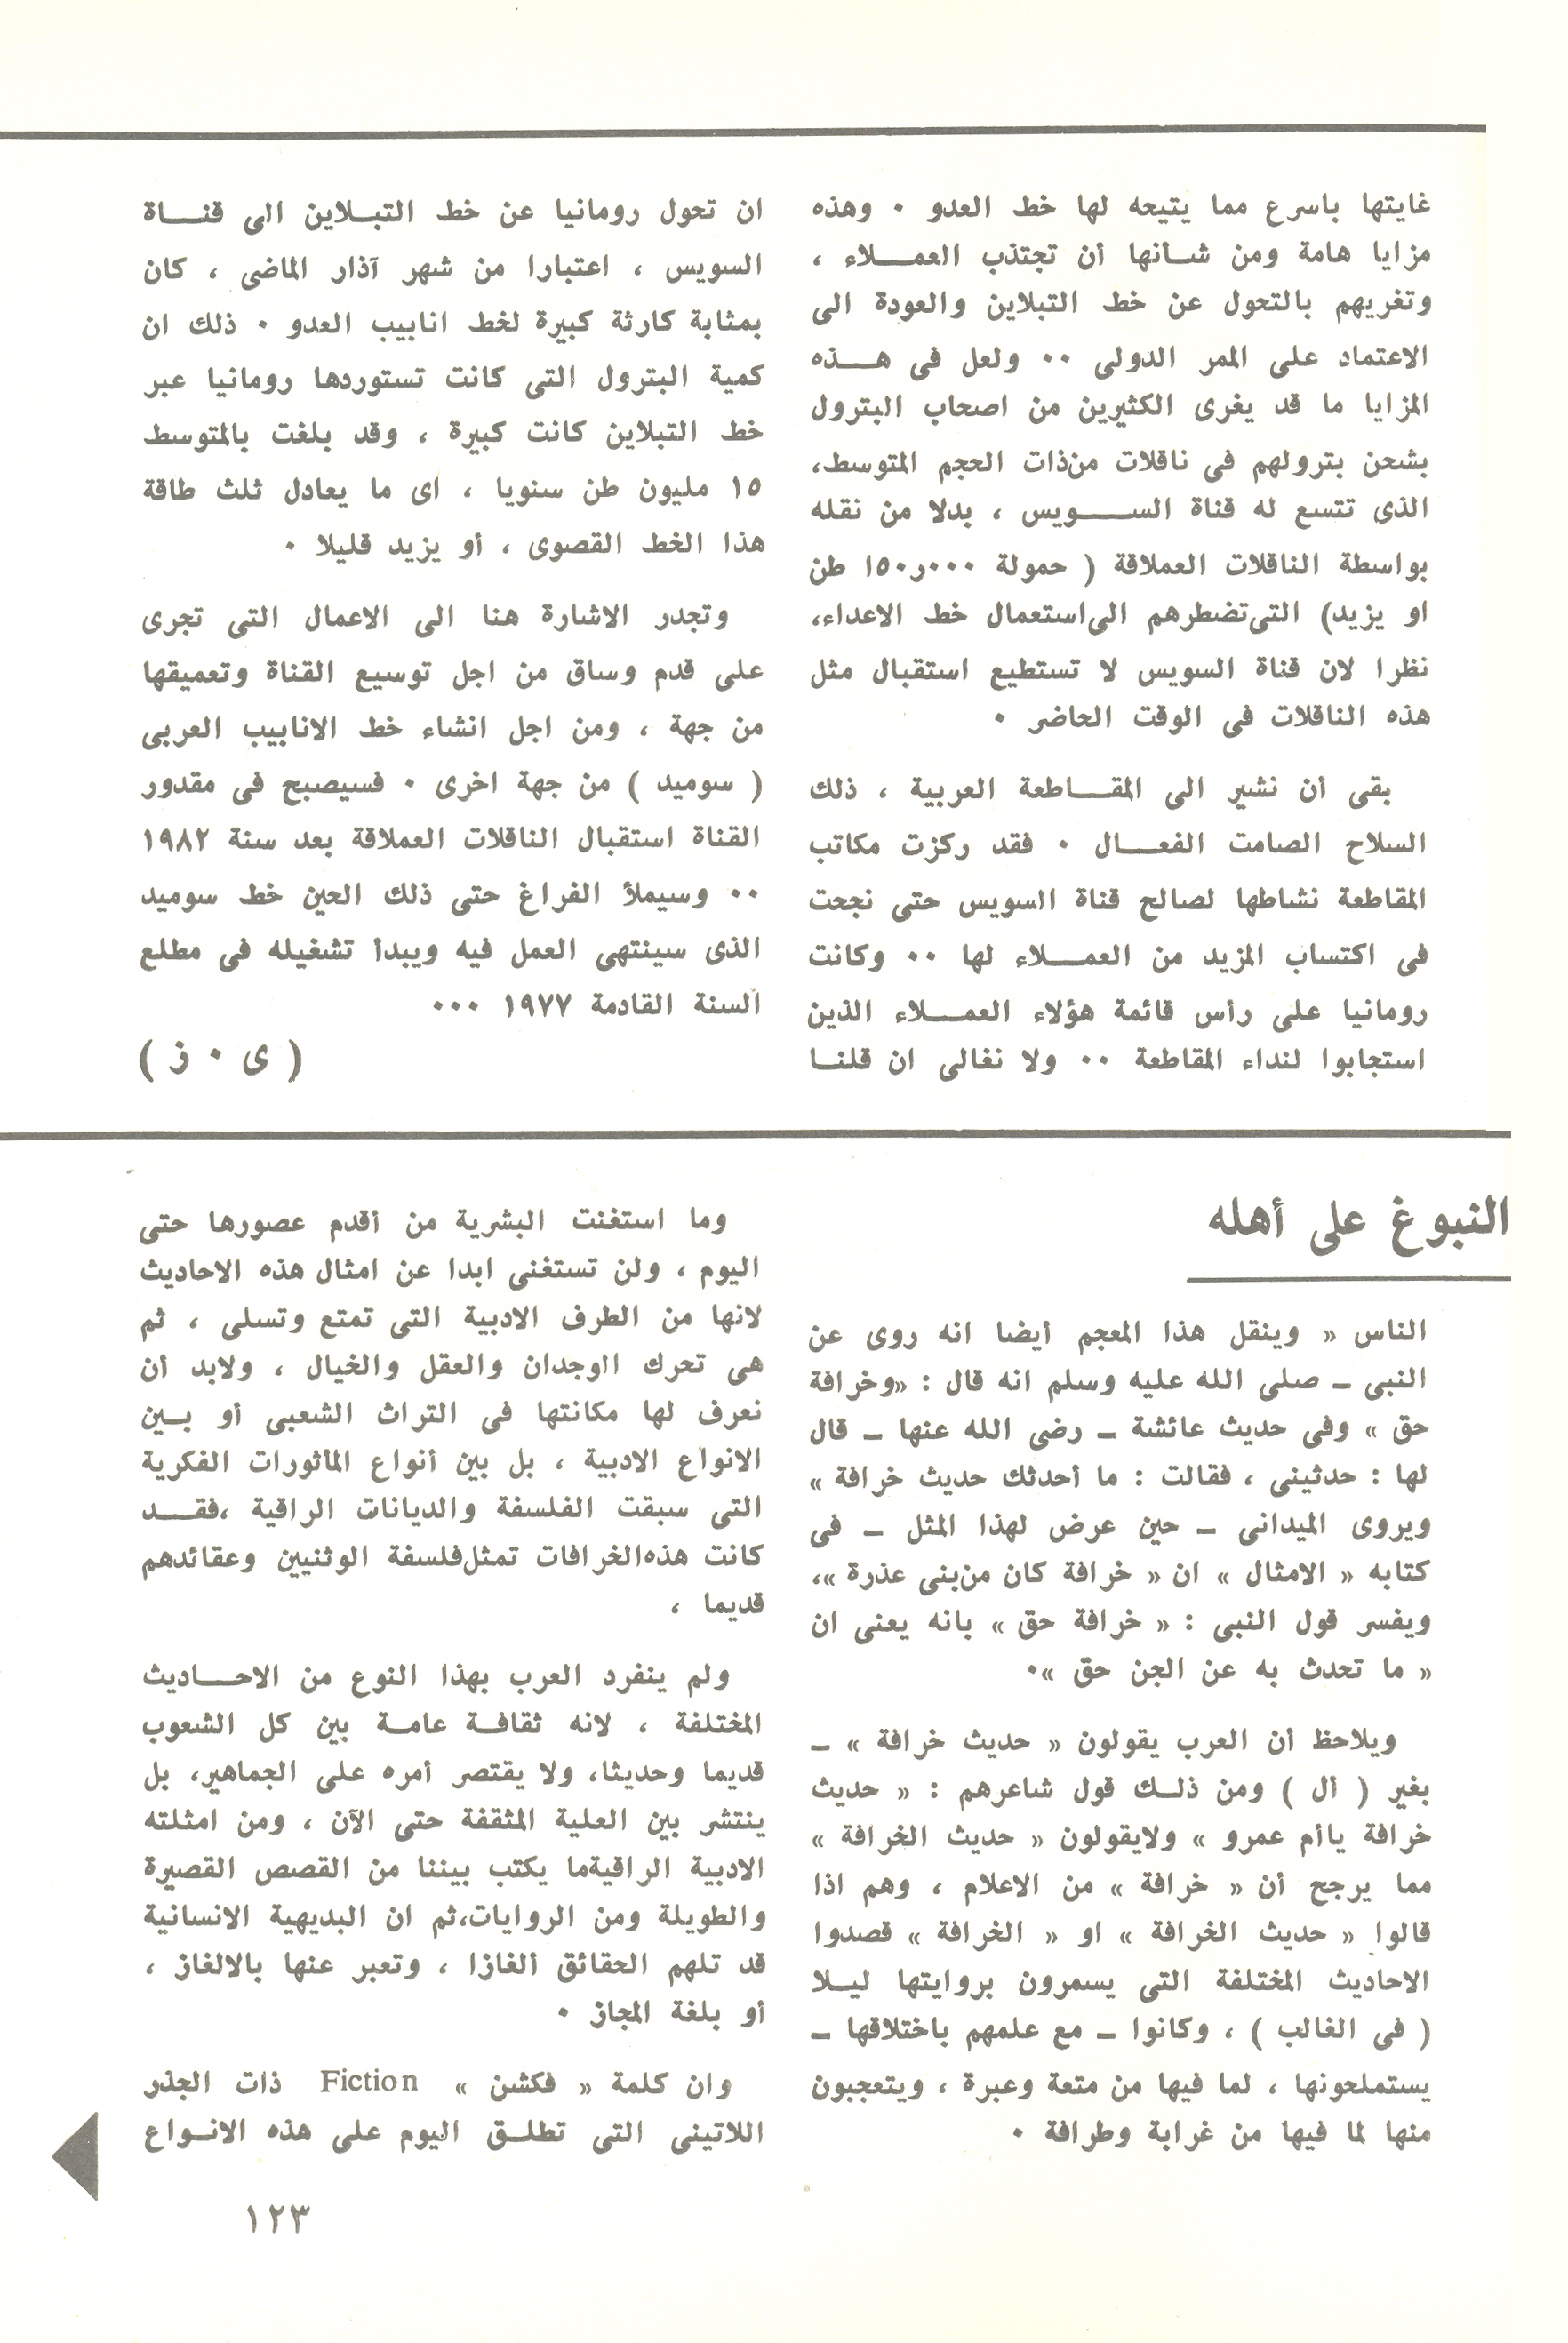 غايتها باسرع مما يتيحه لها خط العدو ٠ وهذه
مزايا هامة ومن شأنها أن تجتذب العملاء ،
وتغريهم بالتحول عن خط التبلاين والعودة الى
الاعتماد على الممر الدولى ٠٠ ولعل فى هذه
المزايا ما قد يغرى الكثيرين من اصحاب البترول
بشحن بترولهم فى ناقلات من ذات الحجم المتوسط،
الذى تتسع له قناة السويس ، بدلا من نقله
بواسطة الناقلات العملاقة ( حمولة ١٥٠ر٠٠٠ طن
او يزيد) التى تضطرهم الى استعمال خط الاعداء،
نظرا لان قناة السويس لا تستطيع استقبال مثل
هذه الناقلات فى الوقت الحاضر ٠
بقى أن نشير الى المقاطعة العربية ، ذلك
السلاح الصامت الفعال ٠ فقد ركزت مكاتب
المقاطعة نشاطها لصالح قناة السويس حتى نجحت
فى اكتساب المزيد من العملاء لها ٠٠ وكانت
رومانيا على رأس قائمة هؤلاء العملاء الذين
استجابوا لنداء المقاطعة ٠٠ ولا نغالى ان قلنا
ان تحول رومانيا عن خط التبلاين الى قناة
السويس ، اعتبارا من شهر آذار الماضى ، كان
بمثابة كارثة كبيرة لخط انابيب العدو ٠ ذلك ان
كمية البترول التى كانت تستوردها رومانيا عبر
خط التبلاين كانت كبيرة ، وقد بلغت بالمتوسط
١٥ مليون طن سنويا ، اى ما يعادل ثلث طاقة
هذا الخط القصوى ، أو يزيد قليلا ٠
وتجدر الاشارة هنا الى الاعمال التى تجرى
على قدم وساق من اجل توسيع القناة وتعميقها
من جهة ، ومن اجل انشاء خط الانابيب العربى
( سوميد ) من جهة اخرى ٠ فسيصبح فى مقدور
القناة استقبال الناقلات العملاقة بعد سنة ١٩٨٢
٠٠ وسيملأ الفراغ حتى ذلك الحين خط سوميد
الذى سينتهى العمل فيه ويبدأ تشغيله فى مطلع
السنة القادمة ١٩٧٧ ٠٠٠
( ى ٠ ز )
النبوغ على أهله
الناس « وينقل هذا المعجم أيضا انه روى عن
النبى ـ صلى الله عليه وسلم انه قال : «وخرافة
حق » وفى حديث عائشة ـ رضى الله عنها ـ قال
لها : حدثينى ، فقالت : ما أحدثك حديث خرافة »
ويروى الميدانى ـ حين عرض لهذا المثل ـ فى
كتابه « الامثال » ان « خرافة كان من بنى عذرة »،
ويفسر قول النبى : « خرافة حق » بانه يعنى ان
« ما تحدث به عن الجن حق »٠
ويلاحظ أن العرب يقولون « حديث خرافة » ـ
بغير ( أل ) ومن ذلك قول شاعرهم : « حديث
خرافة ياأم عمرو » ولايقولون « حديث الخرافة »
مما يرجح أن « خرافة » من الاعلام ، وهم اذا
قالوا « حديث الخرافة » او « الخرافة » قصدوا
الاحاديث المختلفة التى يسمرون بروايتها ليلا
( فى الغالب ) ، وكانوا ـ مع علمهم باختلاقها ـ
يستملحونها ، لما فيها من متعة وعبرة ، ويتعجبون
منها لما فيها من غرابة وطرافة ٠
وما استغنت البشرية من أقدم عصورها حتى
اليوم ، ولن تستغنى ابدا عن امثال هذه الاحاديث
لانها من الطرف الادبية التى تمتع وتسلى ، ثم
هى تحرك الوجدان والعقل والخيال ، ولابد أن
نعرف لها مكانتها فى التراث الشعبى أو بين
الانواع الادبية ، بل بين أنواع المأثورات الفكرية
التى سبقت الفلسفة والديانات الراقية ،فقد
كانت هذه الخرافات تمثل فلسفة الوثنيين وعقائدهم
قديما ،
ولم ينفرد العرب بهذا النوع من الاحاديث
المختلفة ، لانه ثقافة عامة بين كل الشعوب
قديما وحديثا، ولا يقتصر أمره على الجماهير، بل
ينتشر بين العلية المثقفة حتى الآن ، ومن امثلته
الادبية الراقيةما يكتب بيننا من القصص القصيرة
والطويلة ومن الروايات،ثم ان البديهية الانسانية
قد تلهم الحقائق ألغازا ، وتعبر عنها بالالغاز ،
أو بلغة المجاز ٠
وان كلمة « فكشن » Fiction ذات الجذر
اللاتينى التى تطلق اليوم على هذه الانواع
١٢٣